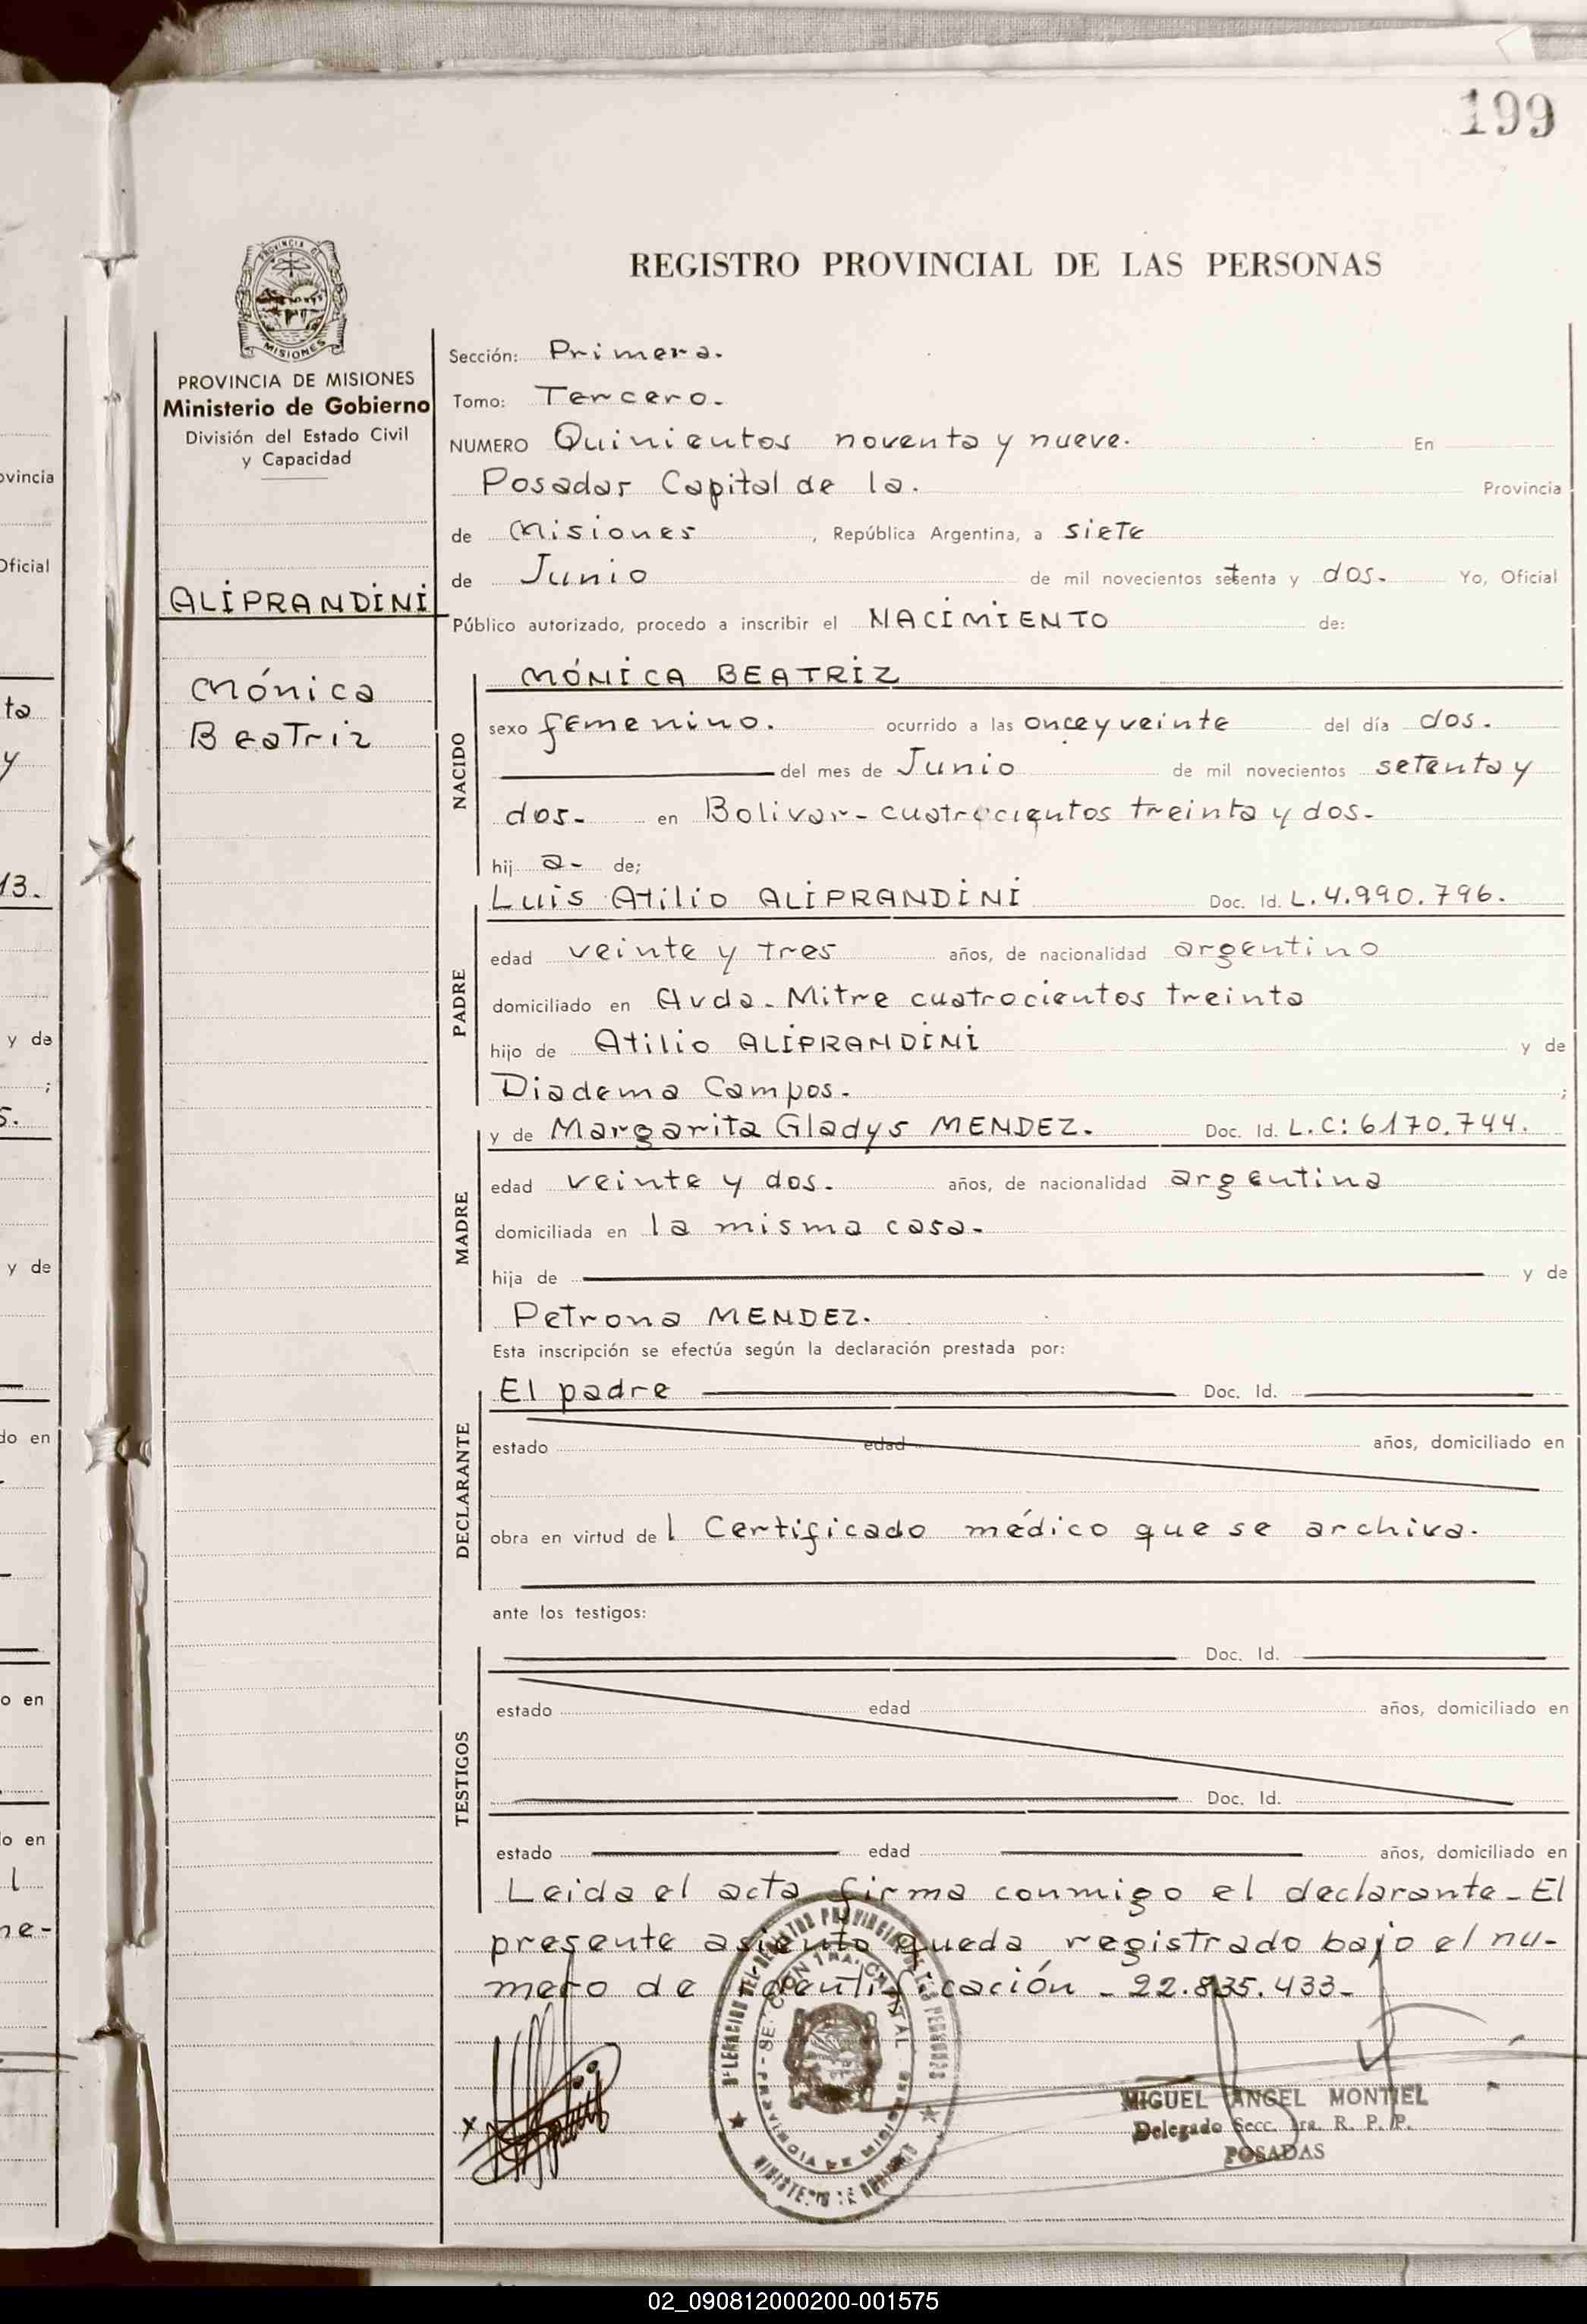 199
REGISTRO PROVINCIAL DE LAS PERSONAS
PROVINCIA DE MISIONES
MISIONES
PROVINCIA DE MISIONES
Ministerio de Gobierno
División del Estado Civil
y Capacidad
ALIPRANDINI
Mónica
Beatriz
Sección: Primera.
Tomo: Tercero.
NUMERO Quinientos noventa y nueve. En
Posadas Capital de la. Provincia
de Misiones, República Argentina, a siete
de Junio de mil novecientos setenta y dos. Yo, Oficial
Público autorizado, procedo a inscribir el NACIMIENTO de:
NACIDO
MÓNICA BEATRIZ
sexo femenino. ocurrido a las once y veinte del día dos.
del mes de Junio de mil novecientos setenta y
dos- en Bolivar- cuatrocientos treinta y dos-
hij a- de;
PADRE
Luis Atilio ALIPRANDINI Doc. Id. L. 4.990.796.
edad veinte y tres años, de nacionalidad argentino
domiciliado en Avda. Mitre cuatrocientos treinta
hijo de Atilio ALIPRANDINI y de
Diadema Campos. ;
MADRE
y de Margarita Gladys MENDEZ. Doc. Id. L.C: 6170.744.
edad veinte y dos. años, de nacionalidad argentina
domiciliada en la misma casa-
hija de y de
Petrona MENDEZ.
Esta inscripción se efectúa según la declaración prestada por:
DECLARANTE
El padre Doc. Id.
estado edad años, domiciliado en
obra en virtud de l Certificado médico que se archiva.
ante los testigos:
TESTIGOS
Doc. Id.
estado edad años, domiciliado en
Doc. Id.
estado edad años, domiciliado en
Leida el acta firma conmigo el declarante- El
presente asiento queda registrado bajo el nu-
mero de identificación - 22.835.433-
DELEGACION DEL REGISTRO PROVINCIAL DE LAS PERSONAS
SECCION 1RA. CAPITAL
PROVINCIA DE MISIONES
MINISTERIO DE GOBIERNO
MIGUEL ANGEL MONTIEL
Delegado Secc. 1ra. R. P. P.
POSADAS
ovincia
Oficial
ta
y
13.
y de
;
5.
y de
do en
o en
lo en
l
ne-
02_090812000200-001575